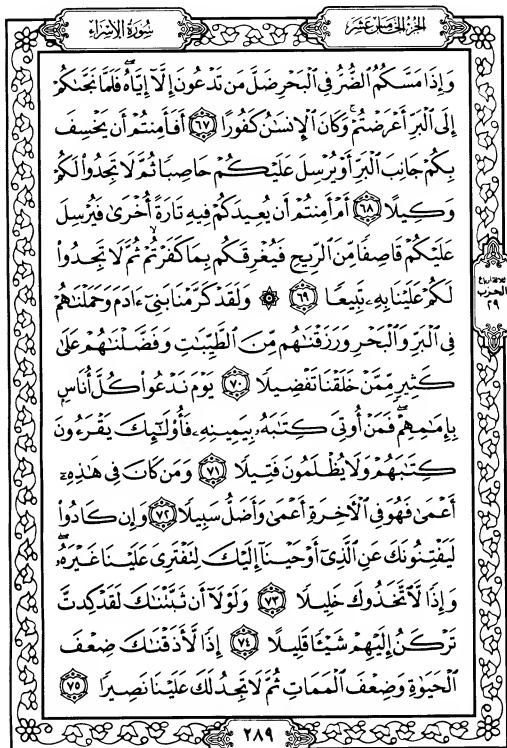 سُورَةُ الإِسْرَاءِ
الجُزْءُ الخَامِسُ عَشَرَ
وَإِذَا مَسَّكُمُ ٱلضُّرُّ فِى ٱلْبَحْرِ ضَلَّ مَن تَدْعُونَ إِلَّآ إِيَّاهُ ۖ فَلَمَّا نَجَّىٰكُمْ
إِلَى ٱلْبَرِّ أَعْرَضْتُمْ ۚ وَكَانَ ٱلْإِنسَـٰنُ كَفُورًا ٦٧ أَفَأَمِنتُمْ أَن يَخْسِفَ
بِكُمْ جَانِبَ ٱلْبَرِّ أَوْ يُرْسِلَ عَلَيْكُمْ حَاصِبًا ثُمَّ لَا تَجِدُوا۟ لَكُمْ
وَكِيلًا ٦٨ أَمْ أَمِنتُمْ أَن يُعِيدَكُمْ فِيهِ تَارَةً أُخْرَىٰ فَيُرْسِلَ
عَلَيْكُمْ قَاصِفًا مِّنَ ٱلرِّيحِ فَيُغْرِقَكُم بِمَا كَفَرْتُمْ ۙ ثُمَّ لَا تَجِدُوا۟
لَكُمْ عَلَيْنَا بِهِۦ تَبِيعًا ٦٩ ۞ وَلَقَدْ كَرَّمْنَا بَنِىٓ ءَادَمَ وَحَمَلْنَـٰهُمْ
فِى ٱلْبَرِّ وَٱلْبَحْرِ وَرَزَقْنَـٰهُم مِّنَ ٱلطَّيِّبَـٰتِ وَفَضَّلْنَـٰهُمْ عَلَىٰ
كَثِيرٍ مِّمَّنْ خَلَقْنَا تَفْضِيلًا ٧٠ يَوْمَ نَدْعُوا۟ كُلَّ أُنَاسٍۭ
بِإِمَـٰمِهِمْ ۖ فَمَنْ أُوتِىَ كِتَـٰبَهُۥ بِيَمِينِهِۦ فَأُو۟لَـٰٓئِكَ يَقْرَءُونَ
كِتَـٰبَهُمْ وَلَا يُظْلَمُونَ فَتِيلًا ٧١ وَمَن كَانَ فِى هَـٰذِهِۦٓ
أَعْمَىٰ فَهُوَ فِى ٱلْـَٔاخِرَةِ أَعْمَىٰ وَأَضَلُّ سَبِيلًا ٧٢ وَإِن كَادُوا۟
لَيَفْتِنُونَكَ عَنِ ٱلَّذِىٓ أَوْحَيْنَآ إِلَيْكَ لِتَفْتَرِىَ عَلَيْنَا غَيْرَهُۥ ۖ
وَإِذًا لَّٱتَّخَذُوكَ خَلِيلًا ٧٣ وَلَوْلَآ أَن ثَبَّتْنَـٰكَ لَقَدْ كِدتَّ
تَرْكَنُ إِلَيْهِمْ شَيْـًٔا قَلِيلًا ٧٤ إِذًا لَّأَذَقْنَـٰكَ ضِعْفَ
ٱلْحَيَوٰةِ وَضِعْفَ ٱلْمَمَاتِ ثُمَّ لَا تَجِدُ لَكَ عَلَيْنَا نَصِيرًا ٧٥
ثلاثة أرباع
الحزب
٢٩
٢٨٩